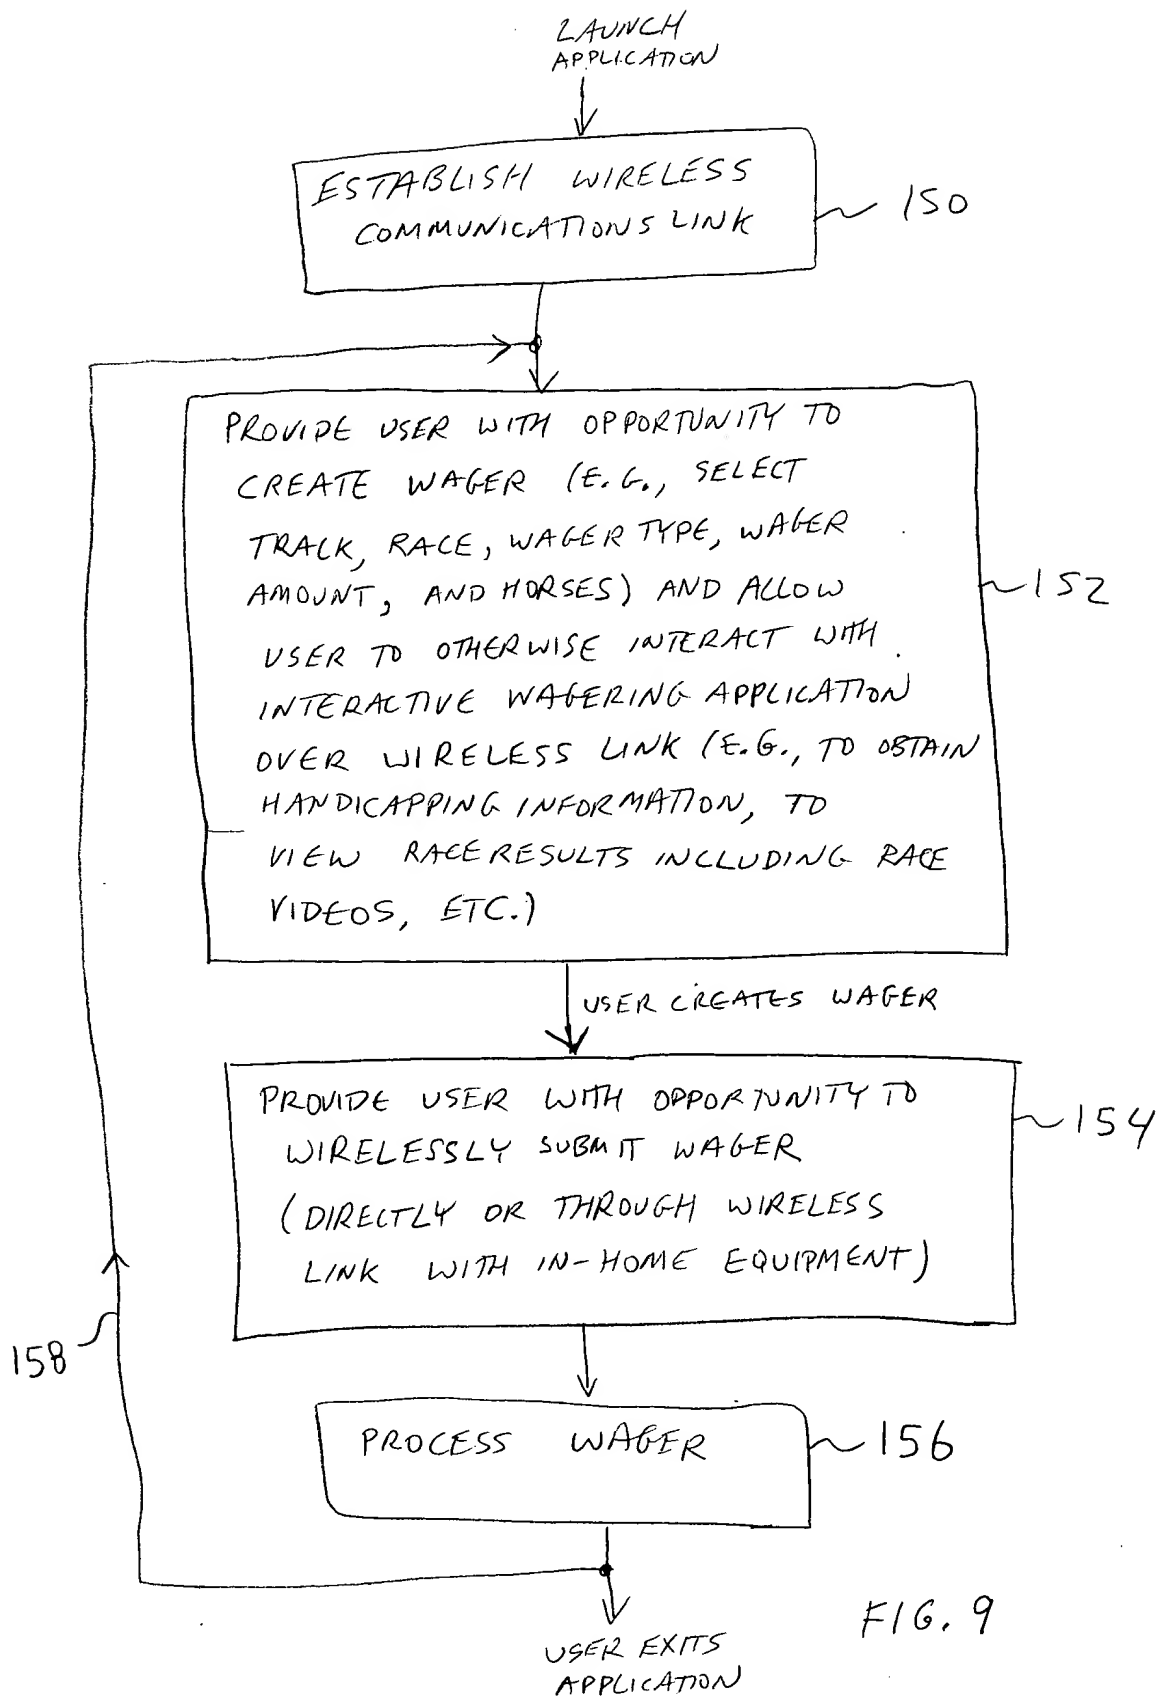 LAUNCH
APPLICATION
ESTABLISH WIRELESS
COMMUNICATIONS LINK
150
PROVIDE USER WITH OPPORTUNITY TO
CREATE WAGER (E.G., SELECT
TRACK, RACE, WAGER TYPE, WAGER
AMOUNT, AND HORSES) AND ALLOW
USER TO OTHERWISE INTERACT WITH
INTERACTIVE WAGERING APPLICATION
OVER WIRELESS LINK (E.G., TO OBTAIN
HANDICAPPING INFORMATION, TO
VIEW RACE RESULTS INCLUDING RACE
VIDEOS, ETC.)
152
USER CREATES WAGER
PROVIDE USER WITH OPPORTUNITY TO
WIRELESSLY SUBMIT WAGER
(DIRECTLY OR THROUGH WIRELESS
LINK WITH IN-HOME EQUIPMENT)
154
158
PROCESS WAGER
156
USER EXITS
APPLICATION
FIG. 9